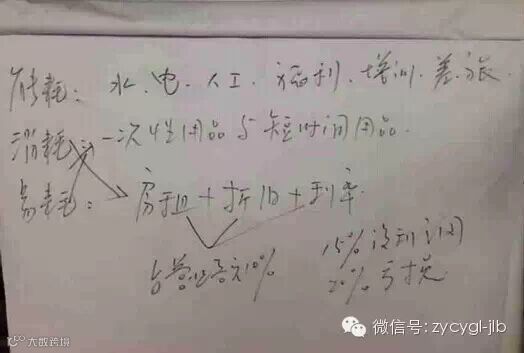 能耗：水、电、人工、福利、培训、差旅.
消耗：一次性用品与短时间用品.
易耗：房租+折旧+利率.
占营业高之10%
15%没利润
20%亏损
微信号: zycygl-jlb
大数跨境